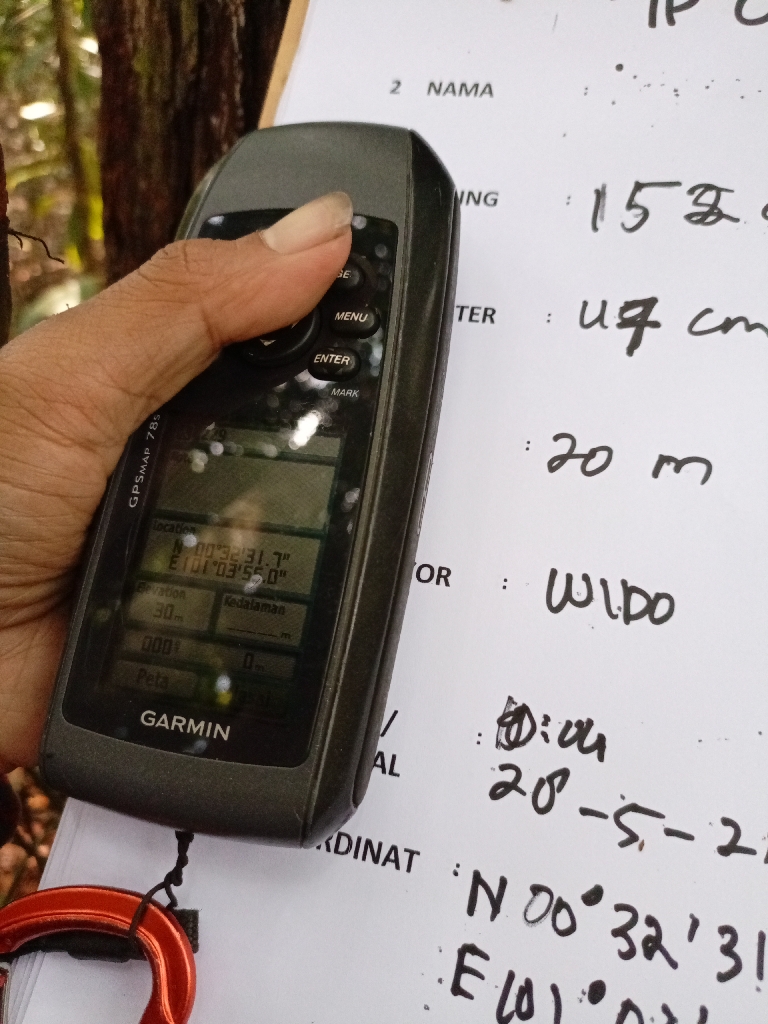 2 NAMA :
ING : 152
TER : 47 cm
: 20 m
YOR : WIDO
/
AL : :04
28-5-2
RDINAT : N 00°32'31
E 101°03
GE
MENU
ENTER
MARK
GPSMAP 78s
Location
N 00°32'31.7"
E101°03'55.0"
Elevation
30m
Kedalaman
_____m
0m
Peta
GARMIN